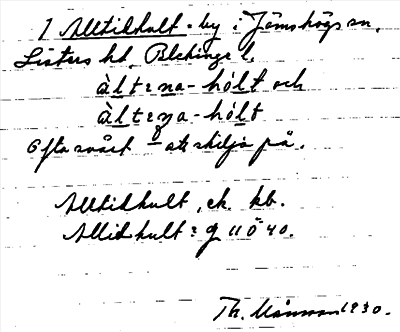 1 Alltidhult - by i Jämshögs sn,
Listers hd, Blekinge l.
àlt:na-hólt och
àlt:na-hólt
Ofta svårt att skilja på.
Alltidhult, ek. kb.
Alltidhult: g 11 Ö 40.
Th. Månsson 1930.